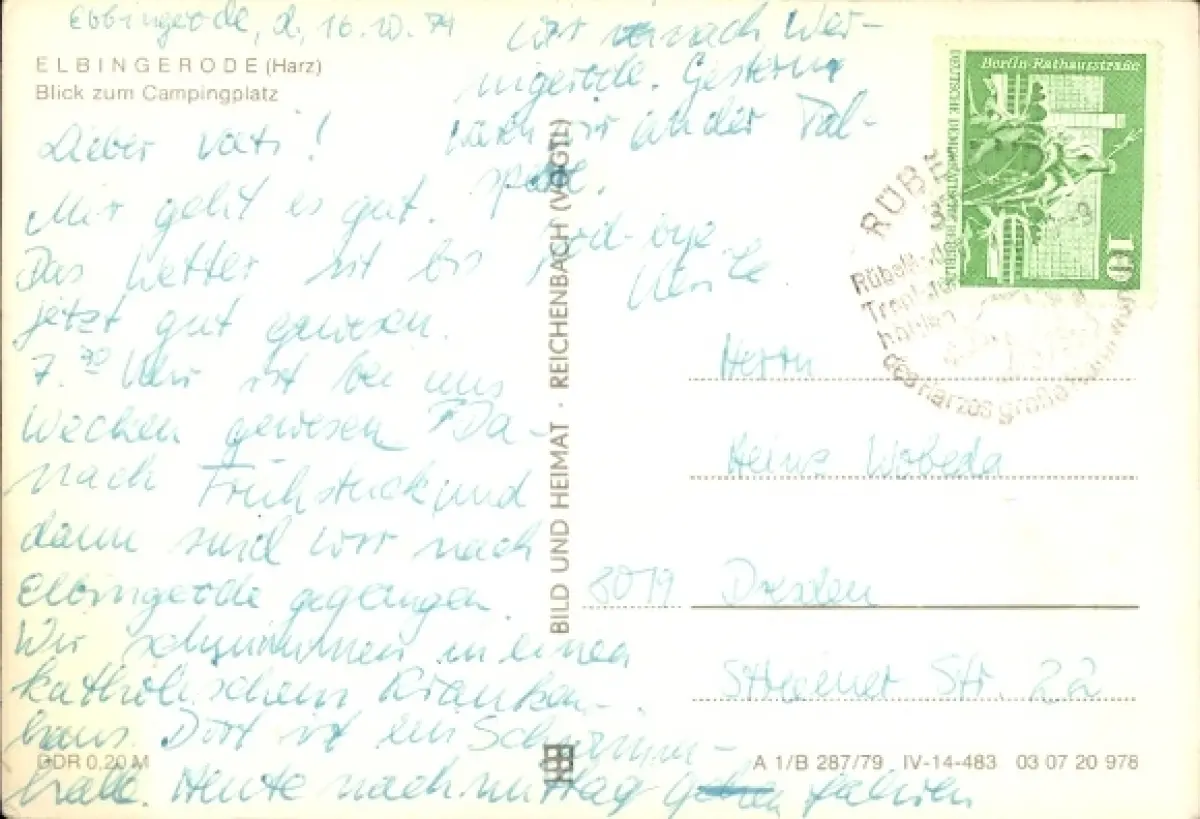 Elbingerode, d, 16.10.79
ELBINGERODE (Harz)
Blick zum Campingplatz
Lieber Vati!
Mir geht es gut.
Das Wetter ist bis
jetzt gut gewesen.
7.30 Uhr ist bei uns
Wecken gewesen Da-
nach Frühstück und
dann sind wir nach
Elbingerode gegangen.
Wir schwimmen in einen
katholischens Kranken-
haus. Dort ist ein Schwimm-
halle. Heute nachmittag gehen fahren
wir nach Wer-
nigerode. Gestern
waren wir an der Tal-
sperre.
GDR 0,20 M
BILD UND HEIMAT · REICHENBACH (VOGTL)
Berlin-Rathausstraße
DEUTSCHE DEMOKRATISCHE REPUBLIK
10
RÜBE
Rübeländer
Tropfstein
höhlen
des Harzes große
Herrn
Heinz Wobeda
8019 Dresden
Striesener Str. 22
A 1/B 287/79 IV-14-483 03 07 20 978